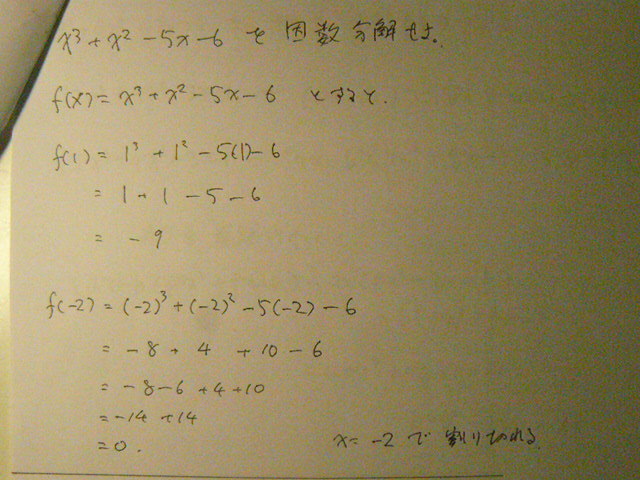 x³+x²-5x-6 を 因数分解せよ。
f(x)=x³+x²-5x-6 とすると.
f(1)= 1³+1²-5(1)-6
= 1+1-5-6
= -9
f(-2)=(-2)³+(-2)²-5(-2)-6
= -8+4+10-6
= -8-6+4+10
=-14+14
=0. x=-2 で 割り切れる.